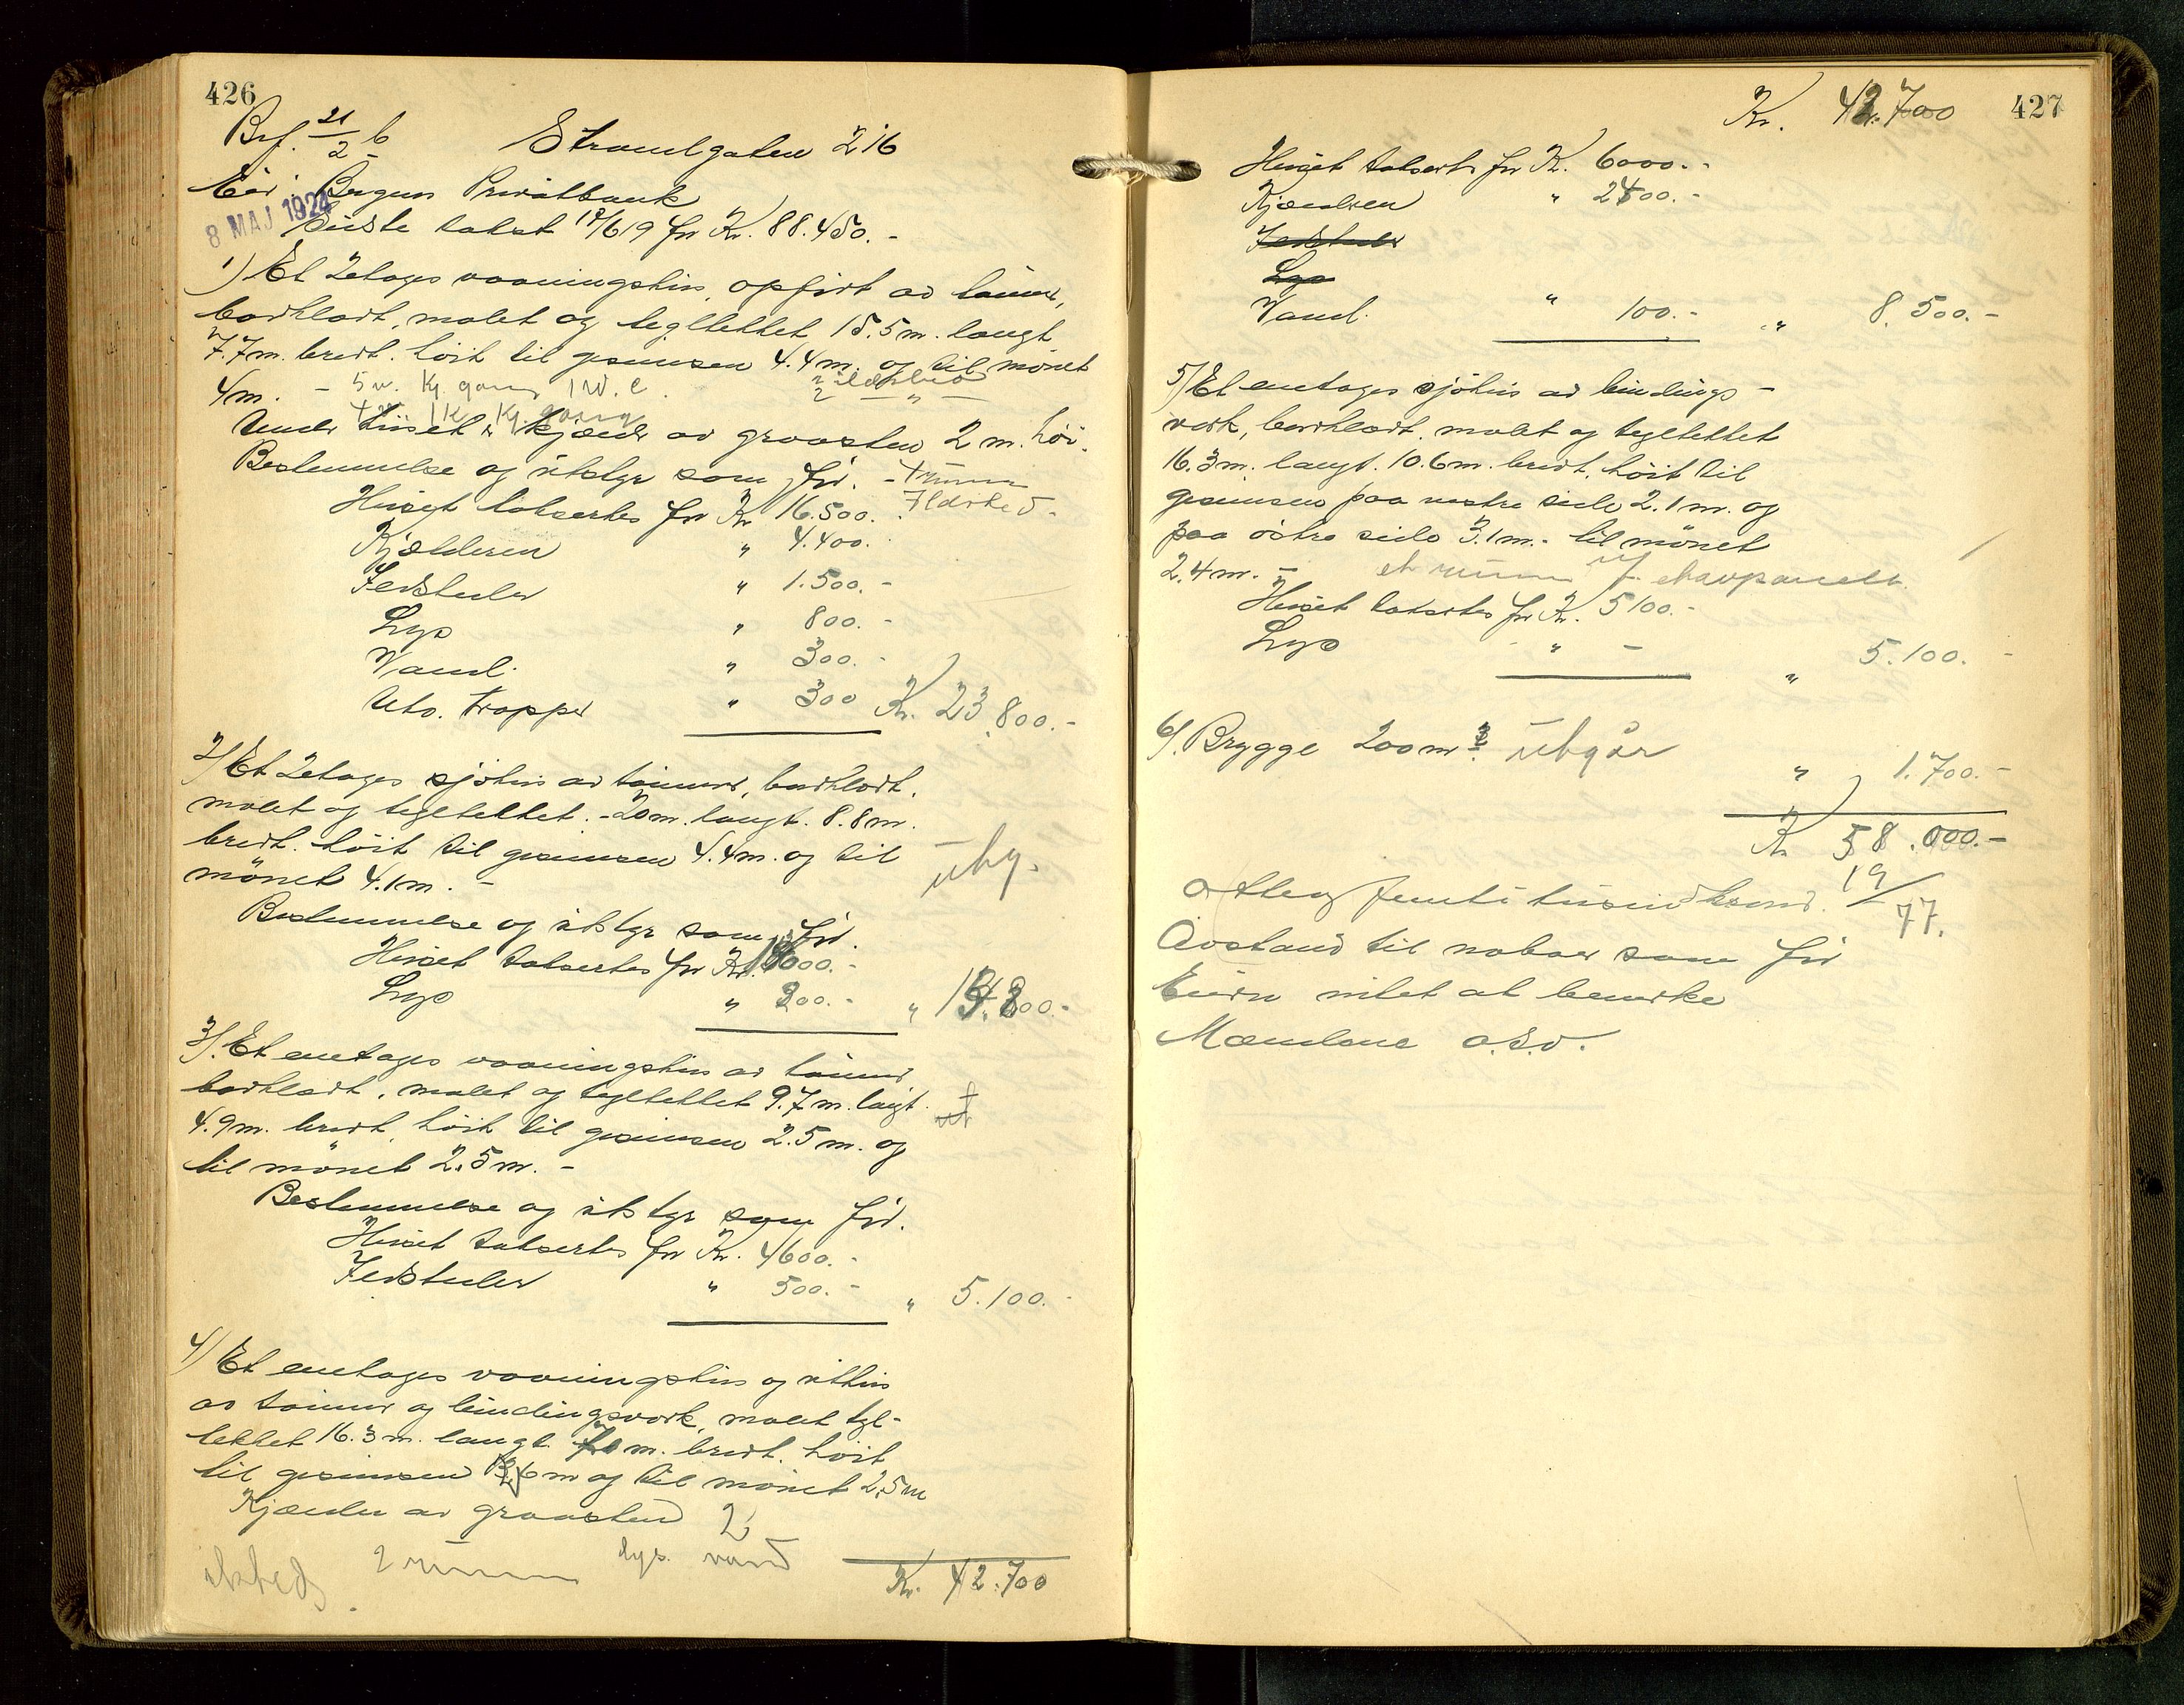 426
Brf. 21/2 b Strandgaten 216
Eier: Bergens Privatbank
8 MAJ 1924
Siste takst 18/6 19 for Kr. 88.450.-
1) Et 2etages vaaningshus, opført av tømmer,
bordklædt, malet og tegltekket 15.5 m. langt
7.7 m. bredt. høit til gesimsen 4.4 m. og til mønet
4 m. - 5 v. Kj. gang 1 W.C.
1 K. Kj. gang
Under huset er kjælder av graasten 2 m. høi.
Bestemmelse og utstyr som før. - 
Ildsted -
Huset taksertes for Kr. 16.500.
Kjælderen " 4.400.
Ildsteder " 1.500.-
Lys " 800.-
Vand. " 300.-
Utv. trapper " 300 Kr. 23.800.-
2) Et 2etages sjøhus av tømmer, bordklædt.
malet og tegltekket. - 20 m. langt. 8.8 m.
bredt. høit til gesimsen 4.4 m. og til
mønet 4.1 m. -
utg.
Bestemmelse og utstyr som før.
Huset taksertes for Kr. 000.-
Lys "
3). Et enetages vaaningshus av tømmer
bordklædt, malet og tegltekket 9.7 m. langt.
ut
4.9 m. bredt, høit til gesimsen 2.5 m. og
til mønet 2.5 m. -
Bestemmelse og utstyr som før.
Huset taksertes for Kr. 4600.-
Ildsteder " 500.- " 5.100.-
4) Et enetages vaaningshus og uthus
av tømmer og bindingsverk, malet tegl-
tekket 16.3 m. langt. m. bredt. høit
til gesimsen 6 m og til mønet 2,5 m
Kjælder av graasten 2
ildsted 2 rum lys. vand
Kr. 42.700
Kr. 42.700 427
Huset taksert for Kr. 6000.-
Kjælderen " 2400.-
Ildsteder
Lys
Vand. " 100.- " 8.500.-
5) Et enetages sjøhus av bindings-
verk, bordklædt. malet og tegltekket
16.3 m. langt. 10.6 m. bredt, høit til
gesimsen paa vestre side 2.1 m. og
paa østre side 3.1 m. - til mønet
2.4 m. - et rum
Huset taksertes for Kr. 5100.-
Lys " - " 5.100.-
6). Brygge 200 m utgår
" 1.700.-
Kr. 58.000.-
otteogfemti tusind kroner. 19/77.
Avstand til naboer som før
Eieren intet at bemerke
Mændene o.s.v.